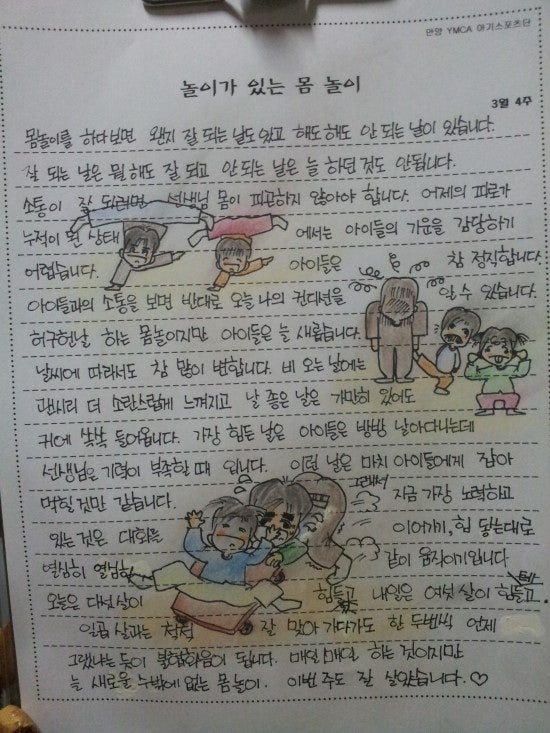 안양 YMCA 아기스포츠단
놀이가 있는 몸 놀이
3월 4주
몸놀이를 하다보면 왠지 잘 되는 날도 있고 해도 해도 안 되는 날이 있습니다.
잘 되는 날은 뭘 해도 잘 되고 안 되는 날은 늘 하던 것도 안됩니다.
소통이 잘 되려면 선생님 몸이 피곤하지 않아야 합니다. 어제의 피로가
누적이 된 상태에서는 아이들의 기운을 감당하기
어렵습니다. 아이들은 참 정직합니다
아이들과의 소통을 보면 반대로 오늘 나의 컨디션을 알 수 있습니다.
허구헌날 하는 몸놀이지만 아이들은 늘 새롭습니다.
날씨에 따라서도 참 많이 변합니다. 비 오는 날에는
괜시리 더 소란스럽게 느껴지고 날 좋은 날은 가만히 있어도
귀에 쏙쏙 들어옵니다. 가장 힘든 날은 아이들은 방방 날아다니는데
선생님은 기력이 부족할 때 입니다. 이런 날은 마치 아이들에게 잡아
먹힐 것만 같습니다. 그래서 지금 가장 노력하고
있는 것은 대화를 이어가기, 힘 닿는대로
열심히 열심히 같이 움직이기입니다
오늘은 다섯살이 힘들고 내일은 여섯살이 힘들고
일곱 살과는 척척 잘 맞아 가다가도 한 두번씩 언제
그랬냐는 듯이 불협화음이 됩니다. 매일 매일 하는 것이지만
늘 새로울 수밖에 없는 몸놀이. 이번 주도 잘 살았습니다. ♡